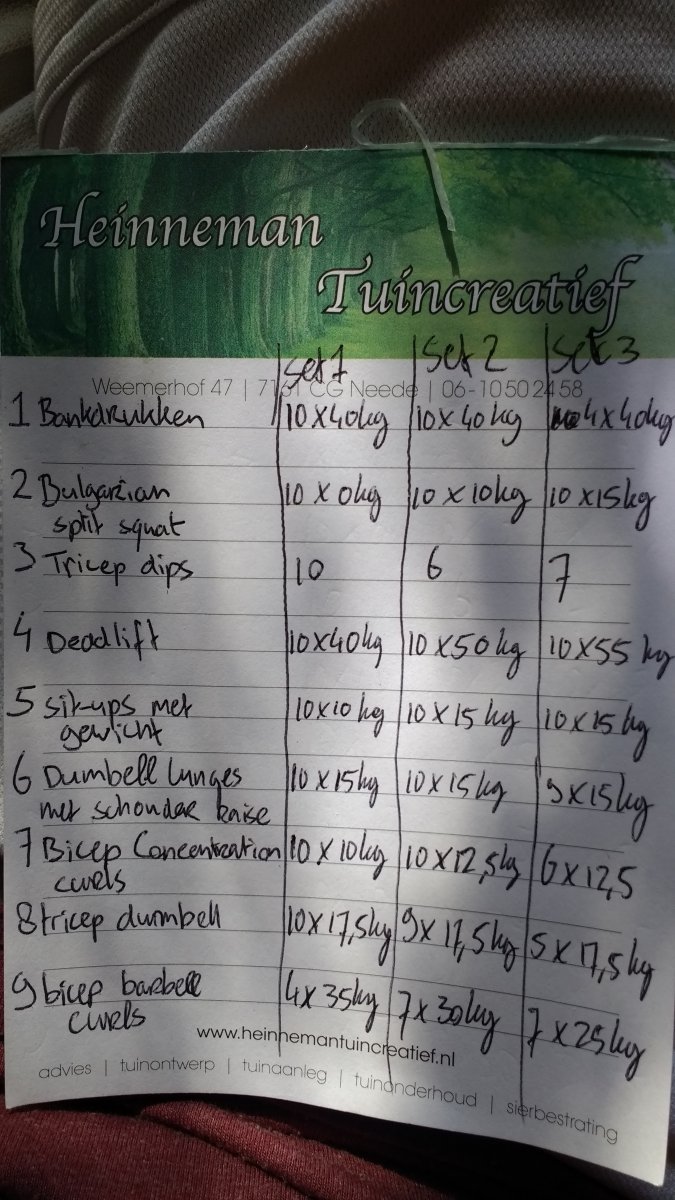 Heinneman
Tuincreatief
set 1 set 2 set 3
Weemerhof 47 | 7161 CG Neede | 06-10502458
1 Bankdrukken 10 x 40kg 10 x 40 kg 4 x 40kg
2 Bulgarian 10 x 0kg 10 x 10kg 10 x 15kg
split squat
3 Tricep dips 10 6 7
4 Deadlift 10x40kg 10 x 50 kg 10 x 55 kg
5 sit-ups met 10x10 kg 10 x 15 kg 10 x 15 kg
gewicht
6 Dumbell lunges 10 x 15kg 10 x 15 kg 9 x 15kg
met schouder raise
7 Bicep Concentration 10 x 10kg 10 x 12,5kg 6 x 12,5
curls
8 tricep dumbell 10x 17,5kg 9x 17,5kg 5 x 17,5kg
9 bicep barbell 4x 35kg 7x 30kg 7 x 25kg
curls
www.heinnemantuincreatief.nl
advies | tuinontwerp | tuinaanleg | tuinonderhoud | sierbestrating